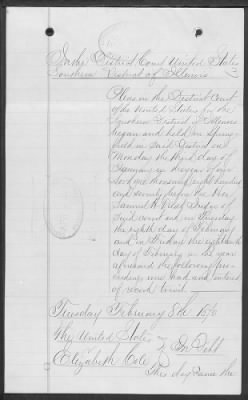 In the District Court United States
Southern District of Illinois
Pleas in the District Court
of the United States for the
Southern District of Illinois
began and held in Spring-
field in said District on
Monday the third day of
January in the year of our
Lord one thousand eight hundred
and seventy before the Hon
Samuel H Treat Judge of
said court and on Tuesday
the eighth day of February
and on Friday the eighteenth
day of February in the year
aforesaid the following pro-
ceedings were had and entered
of record to wit
Tuesday February 8th 1870
The United States
In Debt
Elizabeth Cole
This day came the